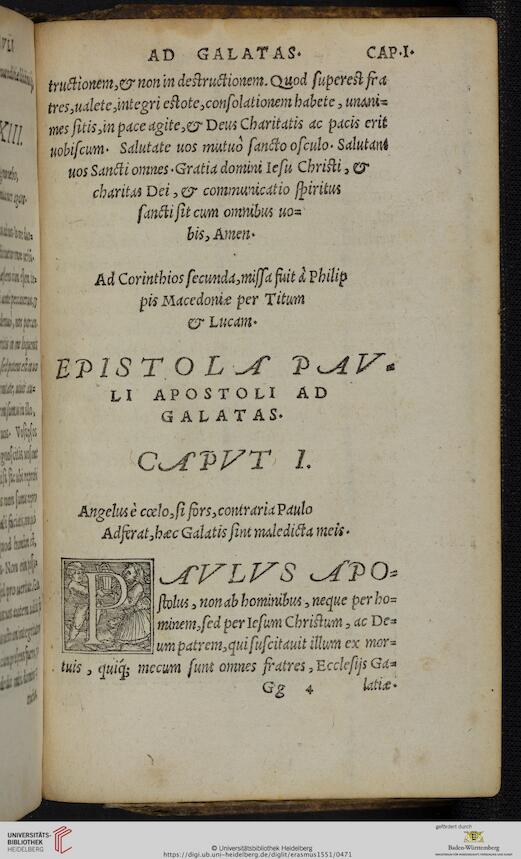 AD GALATAS. CAP.I.
tructionem,& non in destructionem. Quod superest fra
tres,ualete,integri estote,consolationem habete, unani=
mes sitis,in pace agite,& Deus Charitatis ac pacis erit
uobiscum. Salutate uos mutuò sancto osculo. Salutant
uos Sancti omnes. Gratia domini Iesu Christi, &
charitas Dei, & communicatio spiritus
sancti sit cum omnibus uo=
bis, Amen.
Ad Corinthios secunda,missa fuit à Philip
pis Macedoniæ per Titum
& Lucam.
EPISTOLA PAV=
LI APOSTOLI AD
GALATAS.
CAPVT I.
Angelus è cœlo,si fors,contraria Paulo
Adferat,hæc Galatis sint maledicta meis.
PAVLVS APO=
stolus, non ab hominibus, neque per ho=
minem,sed per Iesum Christum, ac De=
um patrem,qui suscitauit illum ex mor=
tuis, quiq́; mecum sunt omnes fratres, Ecclesijs Ga=
Gg 4 latiæ.
UNIVERSITÄTS-
BIBLIOTHEK
HEIDELBERG
© Universitätsbibliothek Heidelberg
https://digi.ub.uni-heidelberg.de/diglit/erasmus1551/0471
gefördert durch
Baden-Württemberg